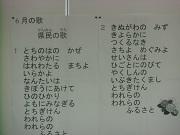 *6月の歌
県民の歌
けんみん うた
1 とちのはの かぜ
さわやかに
はれわたる まちよ
いらかよ
なんたいは
きぼうにあけて
ひのひかり
よもにみなぎる
とちぎけん
われらの
ふるさと
2 きぬがわの みず
きよらかに
つくるなき
さちよ めぐみよ
せいさんは
ひごとにのびて
やくしんの
いぶきたくまし
とちぎけん
われらの
ふるさと